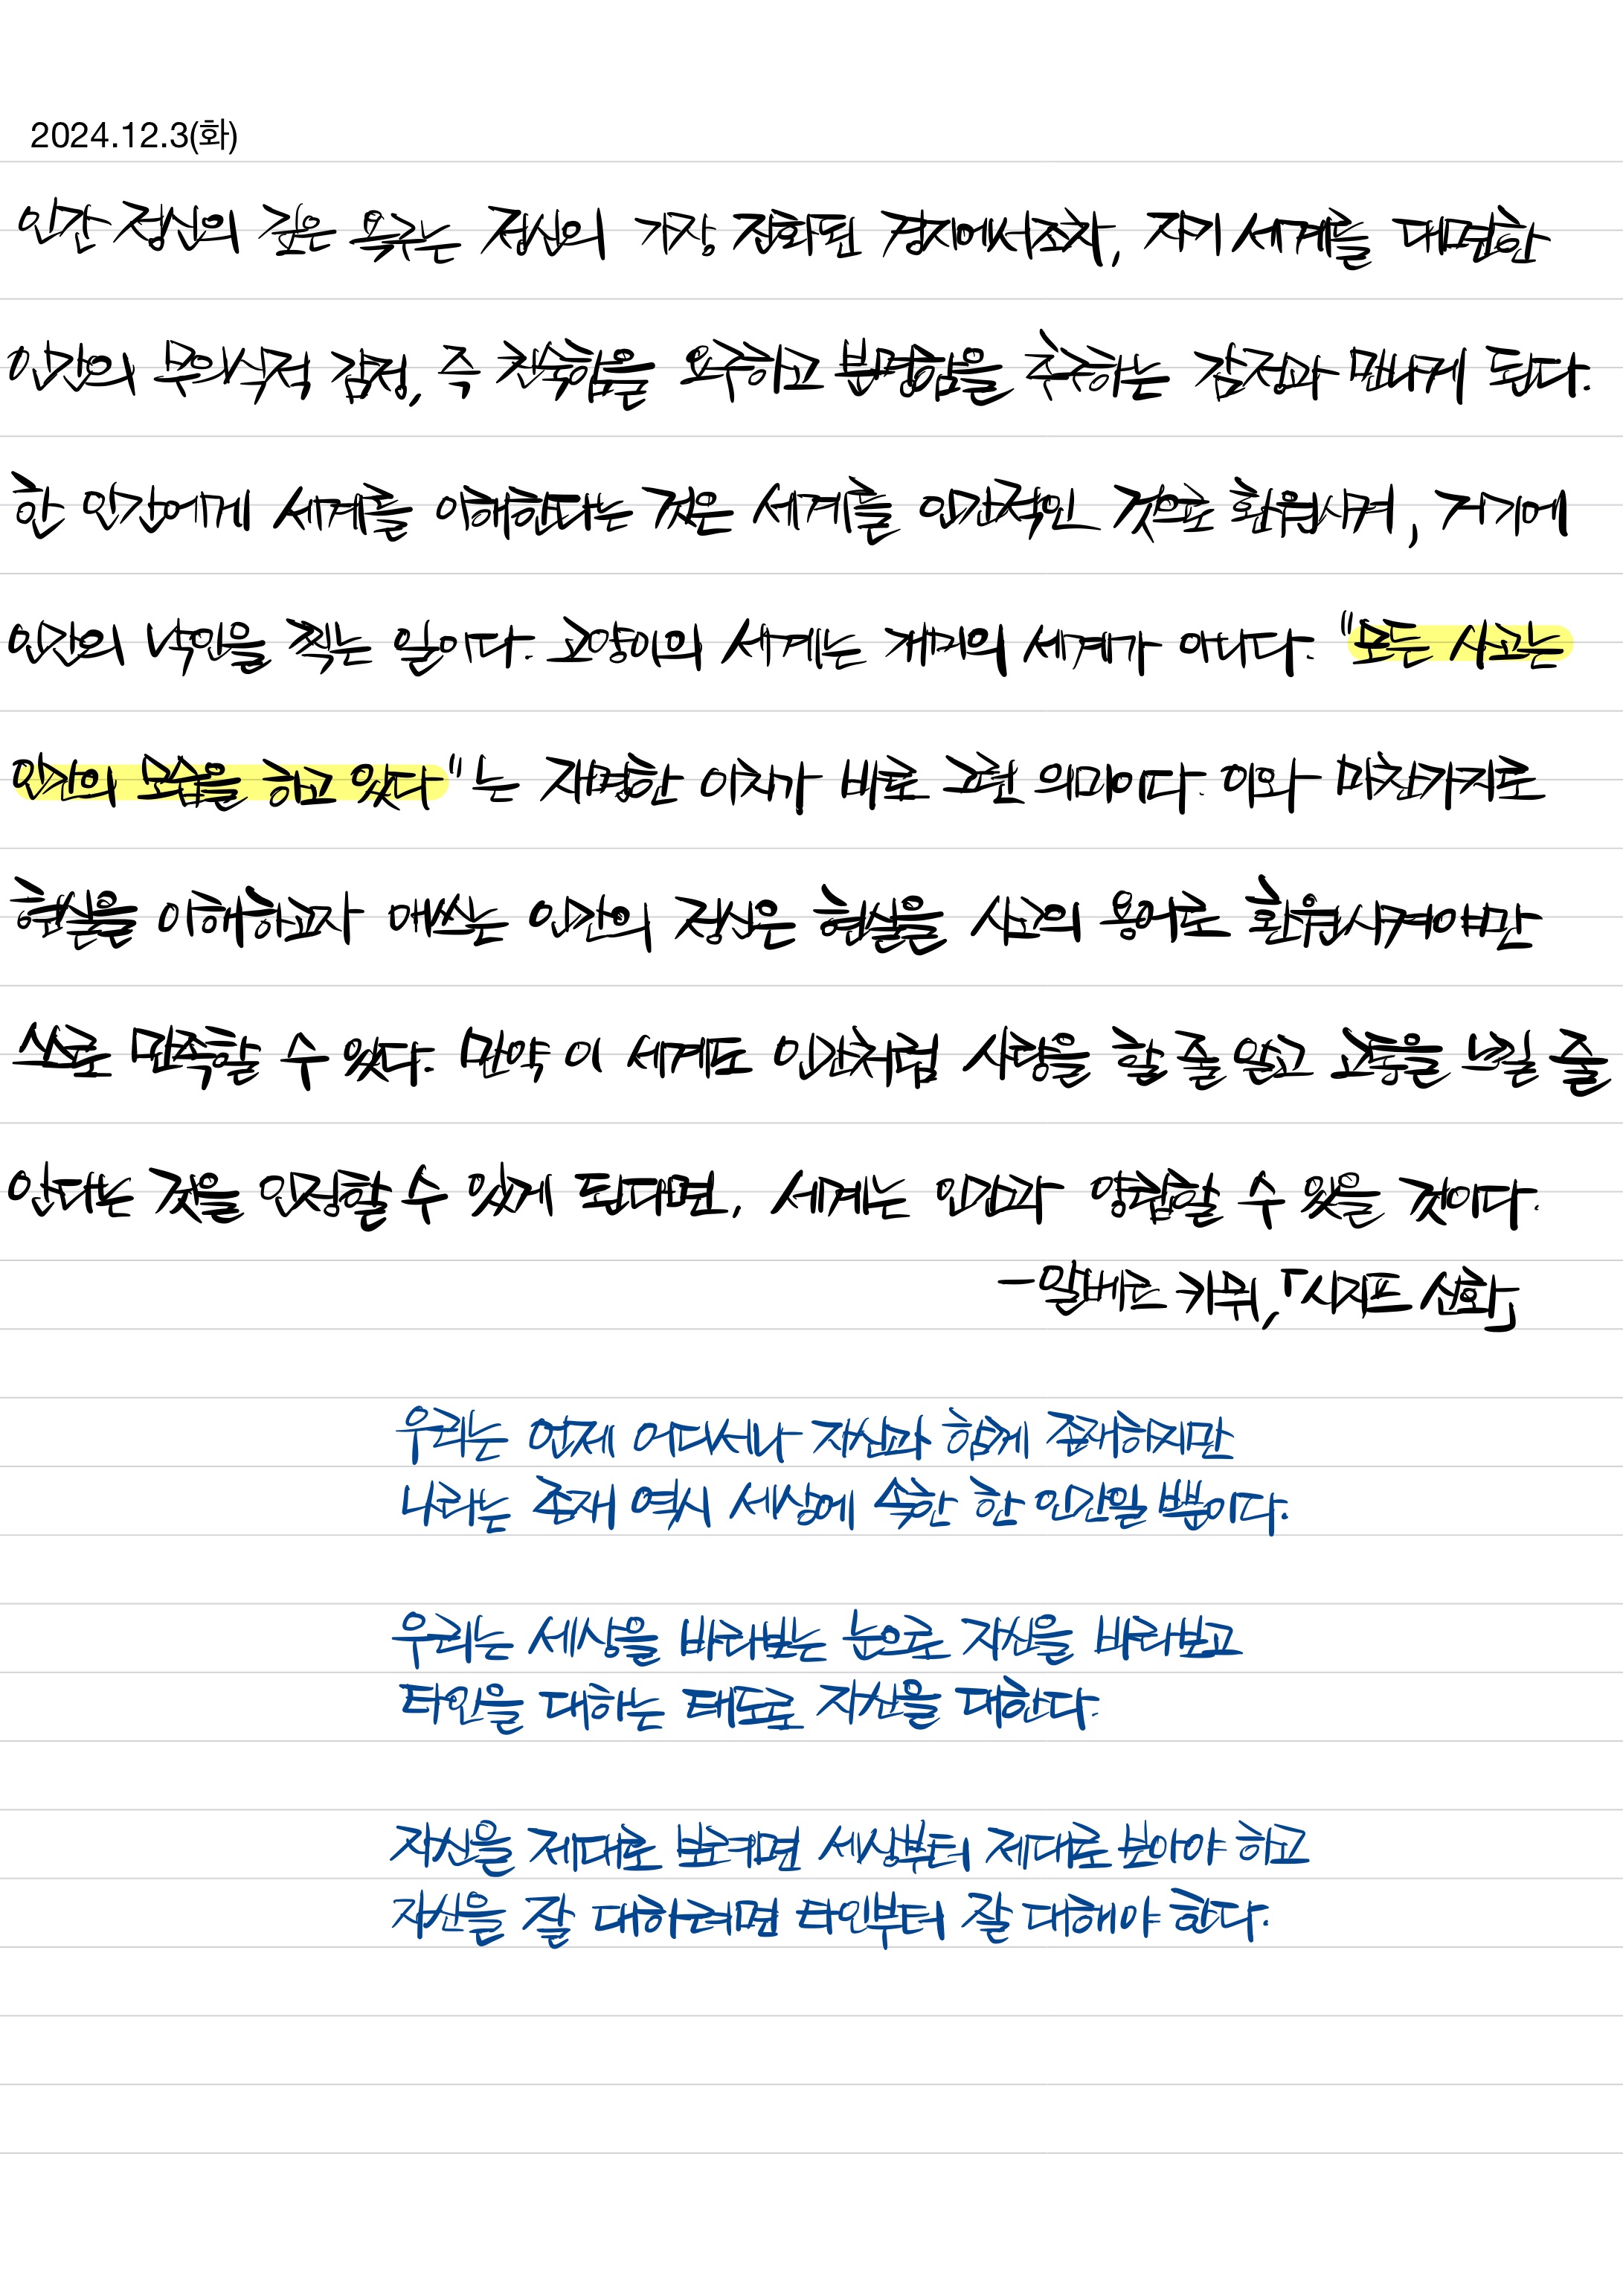 2024.12.3(화)
인간 정신의 깊은 욕구는 정신의 가장 진화된 경지에서조차, 자기 세계를 대면한
인간의 무의식적 감정, 즉 친숙함을 요구하고 분명함을 추구하는 감정과 만나게 된다.
한 인간에게 세계를 이해한다는 것은 세계를 인간적인 것으로 환원시켜, 거기에
인간의 낙인을 찍는 일이다. 고양이의 세계는 개미의 세계가 아니다. "모든 사고는
인간의 모습을 하고 있다"는 자명한 이치가 바로 그런 의미이다. 이와 마찬가지로
현실을 이해하고자 애쓰는 인간의 정신은 현실을 사고의 용어로 환원시켜야만
스스로 만족할 수 있다. 만약 이 세계도 인간처럼 사랑을 할 줄 알고 고통을 느낄 줄
안다는 것을 인정할 수 있게 된다면, 세계는 인간과 양립할 수 있을 것이다.
-알베르 카뮈, 「시지프 신화」
우리는 언제 어디서나 자신과 함께 존재하지만
나라는 존재 역시 세상에 속한 한 인간일 뿐이다.
우리는 세상을 바라보는 눈으로 자신을 바라보고
타인을 대하는 태도로 자신을 대한다.
자신을 제대로 보려면 세상부터 제대로 보아야 하고
자신을 잘 대하려면 타인부터 잘 대해야 한다.